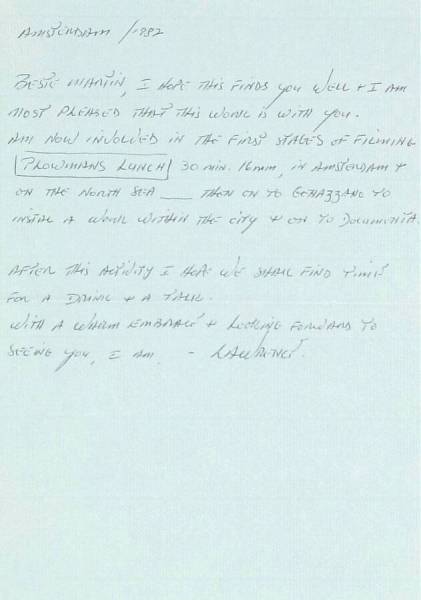 AMSTERDAM / 1982
BESTE MARTIN, I HOPE THIS FINDS YOU WELL + I AM
MOST PLEASED THAT THIS WORK IS WITH YOU.
AM NOW INVOLVED IN THE FIRST STAGES OF FILMING
PLOWMANS LUNCH 30 MIN. 16MM, IN AMSTERDAM +
ON THE NORTH SEA ___ THEN ON TO GENAZZANO TO
INSTAL A WORK WITHIN THE CITY + ON TO DOCUMENTA.
AFTER THIS ACTIVITY I HOPE WE SHALL FIND TIME
FOR A DRINK + A TALK.
WITH A WARM EMBRACE + LOOKING FORWARD TO
SEEING YOU, I AM - LAWRENCE.